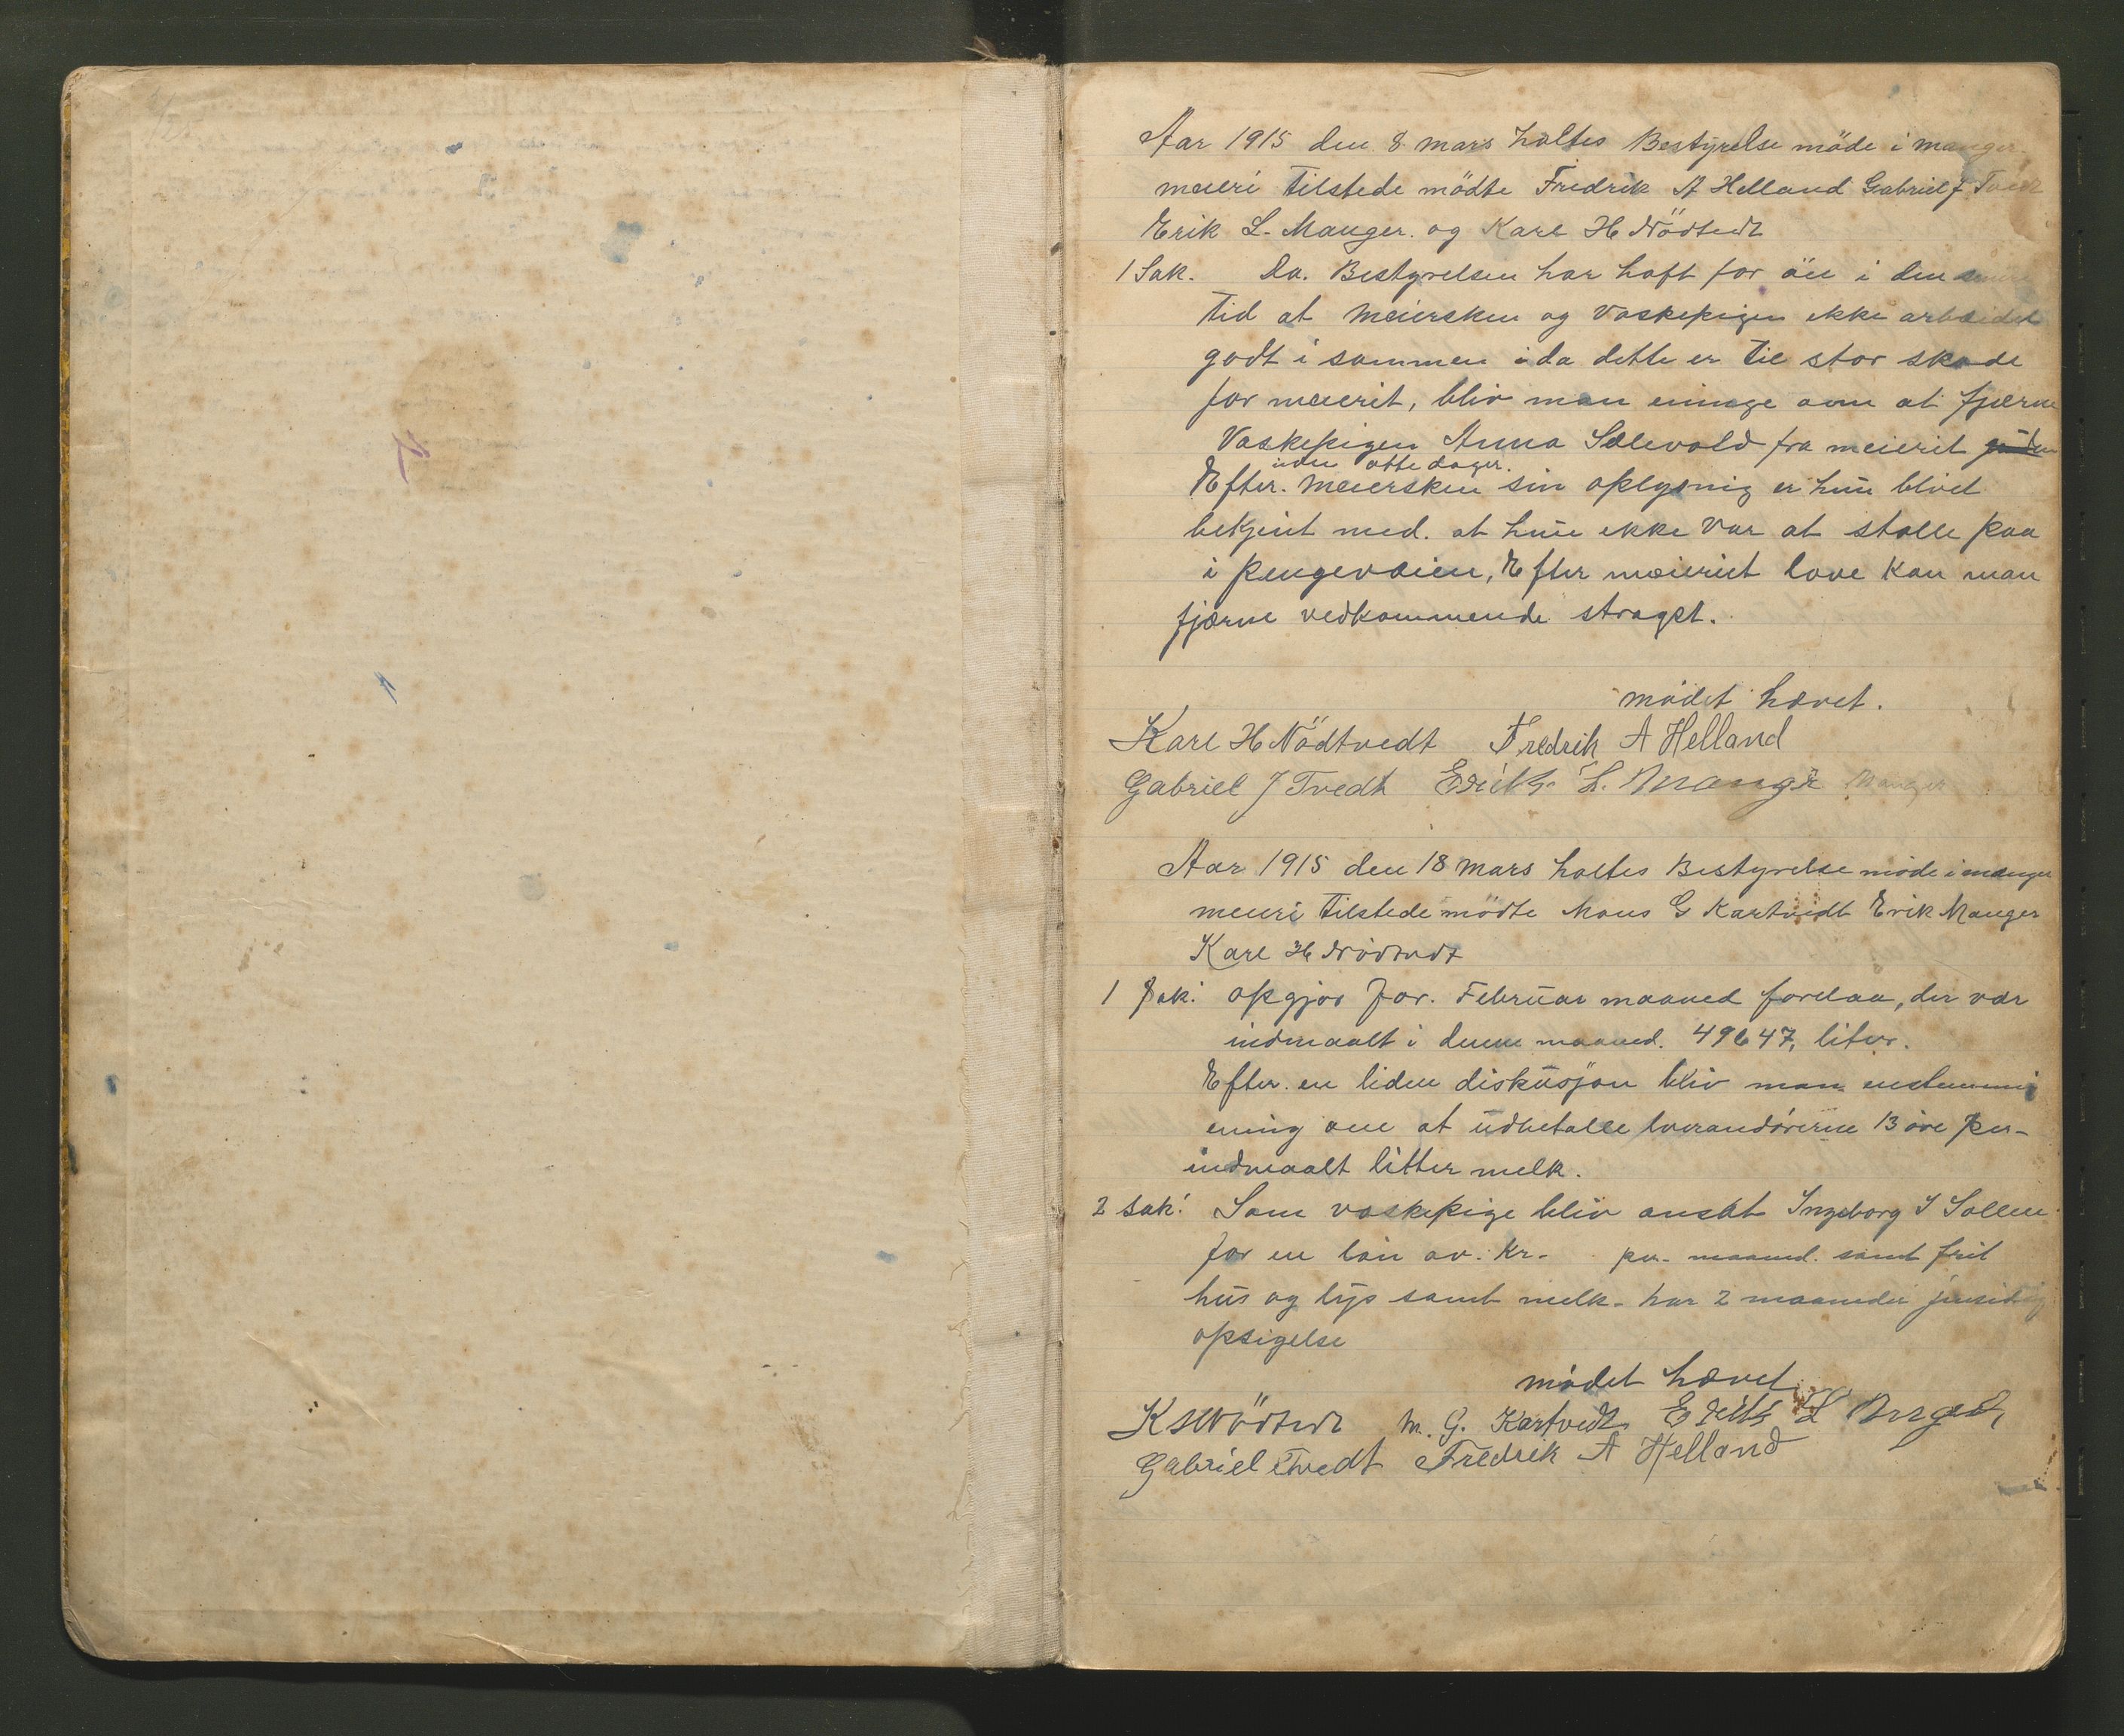 Aar 1915 den 8 mars holtes Bestyrelse möde i manger
meieri tilstede mödte Fredrik A Helland Gabriel J Tvedt
Erik L. Manger. og Karl H Nödtvedt
1 Sak. Da. Bestyrelsen har haft for öie i den
tid at meiersken og vaskepigen ikke arbeidet
godt i sammen i da dette er til stor skade
for meierit, bliv man eninge om at fjerne
Vaskepigen Anna Sælevold fra meierit
inden otte dager.
Efter. meiersken sin oplysnig er hun blvet
bekjent med. at hun ikke var at stolle paa
i pengeveien, Efter meieriet love kan man
fjærne vedkommende straget.
mödet hævet.
Karl H Nödtvedt Fredrik A Helland
Gabriel J Tvedt Erik L. Manger Manger
Aar 1915 den 18 mars holtes Bestyrelse möde i manger
meieri tilstede mödte Mons G Kartveidt Erik Manger
Karl H Nödtvedt
1 Sak: opgjör for. Februar maaned forelaa, der var
indmaalt i denne maaned. 49647, liter.
Efter. en liden diskusjon bliv man enstemmi
ening om at udbetalle leverandörerne 13 öre per-
indmaalt litter melk.
2 sak: Som vaskepige bliv ansat Ingeborg I Sollen
for en lön av. kr. per. maaned. samt frit
hus og lys samt melk. har 2 maaneder jensidig
opsigelse
mödet hævet
K H Nödtvedt M. G. Kartvedt Erik L
Gabriel Tvedt Fredrik A Helland